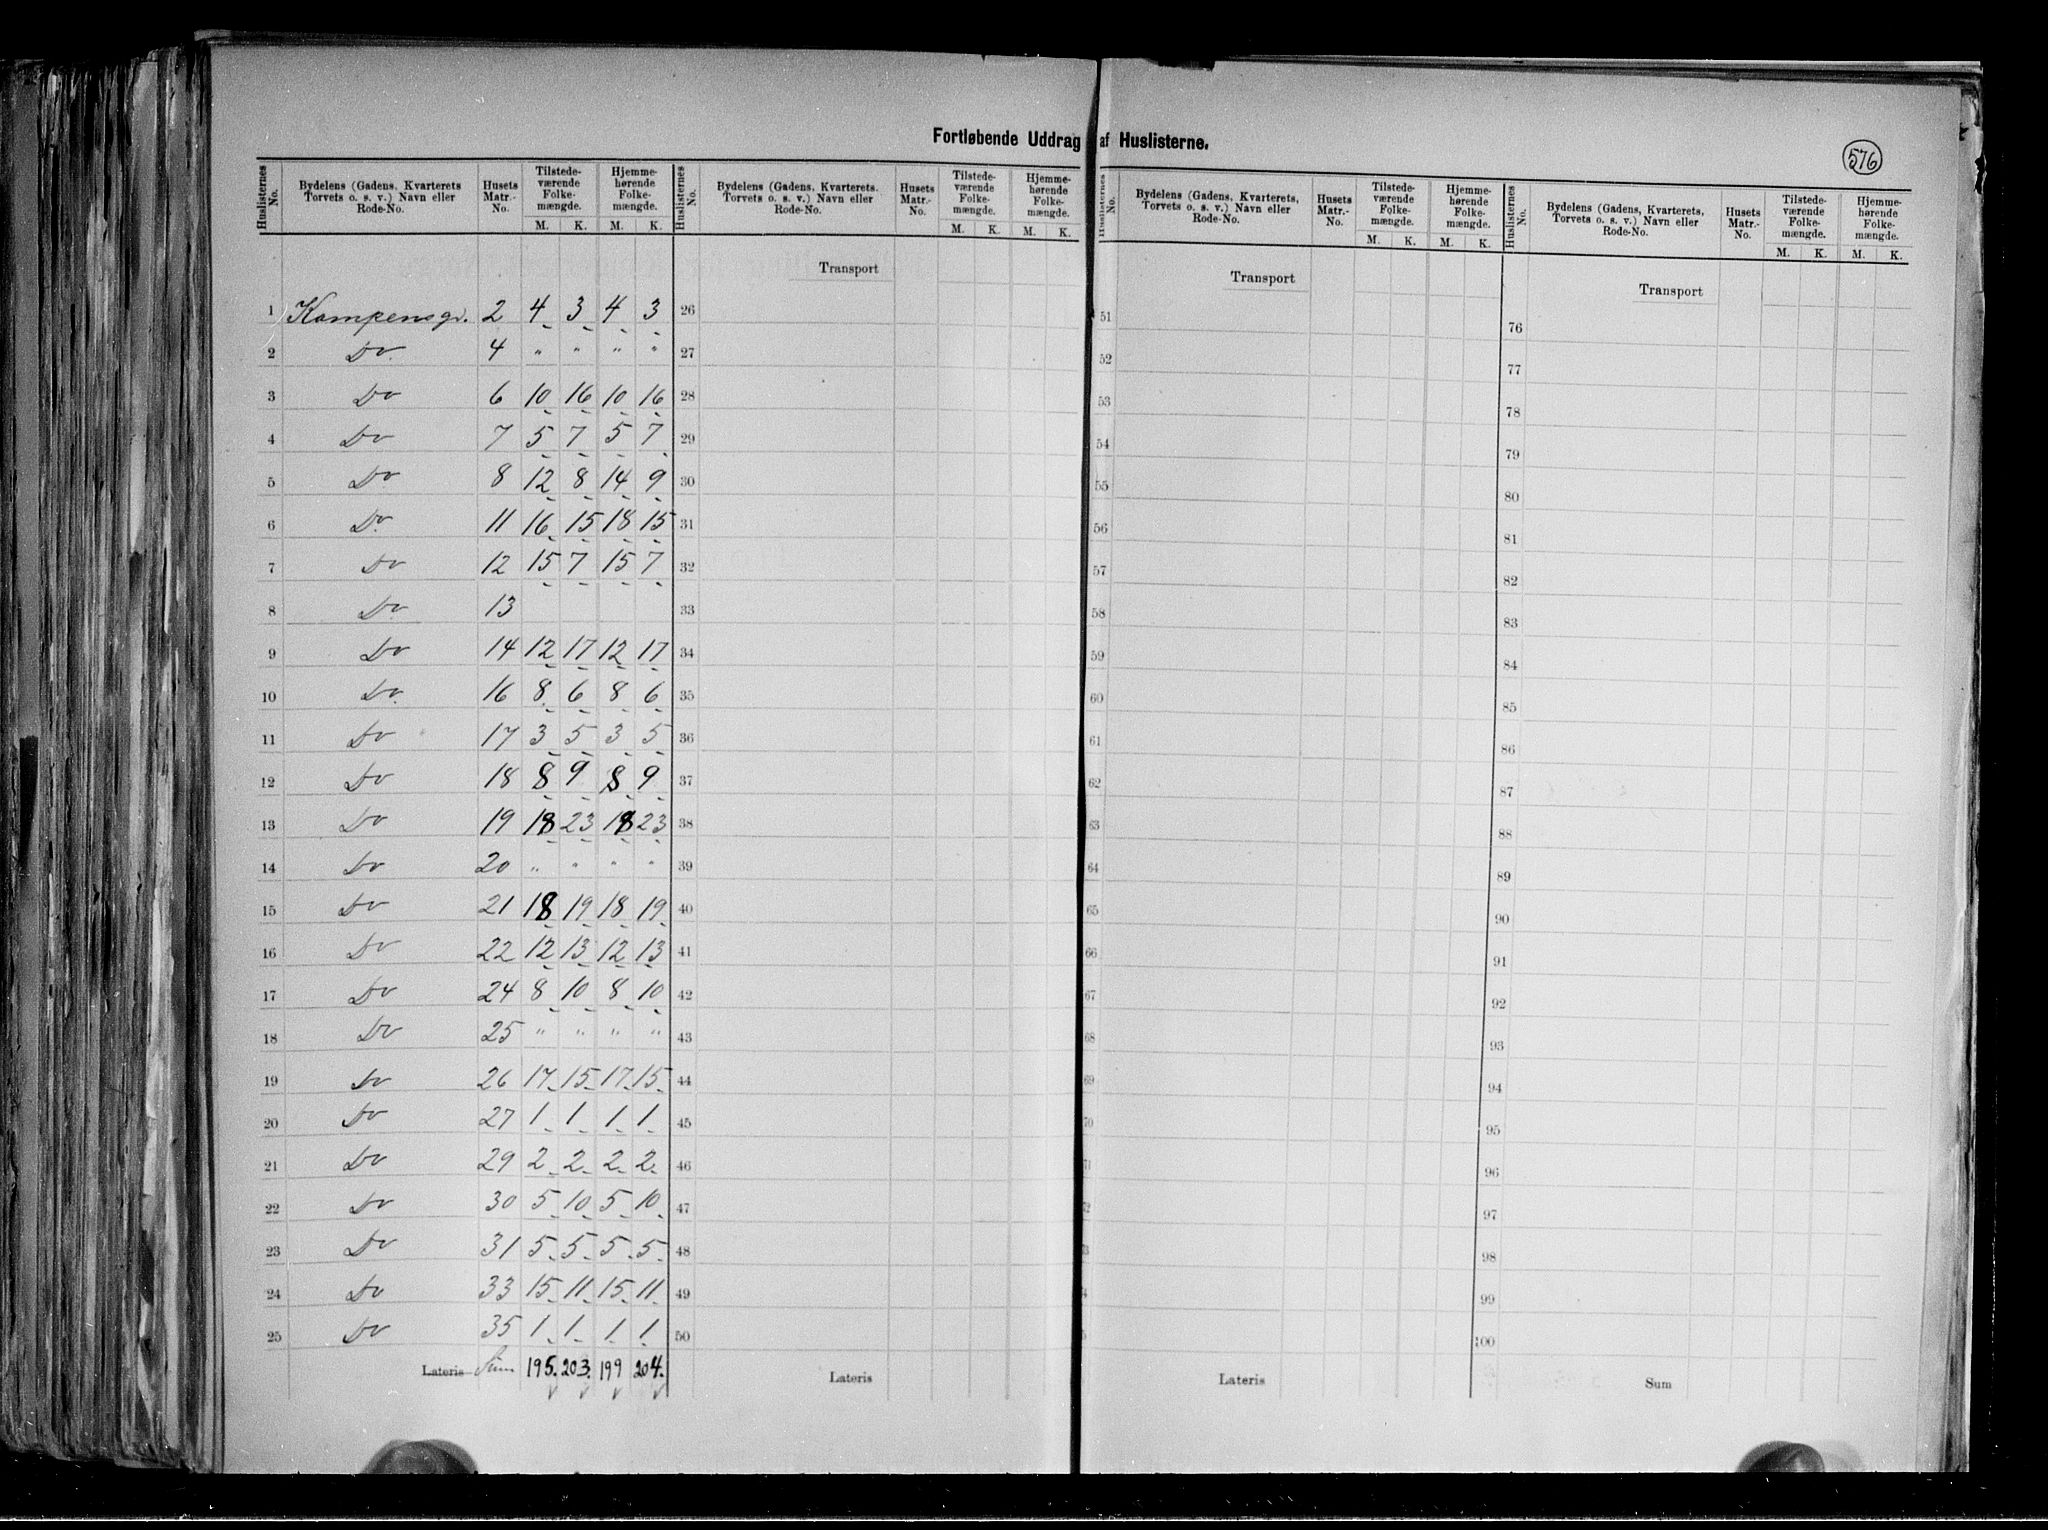 Fortløbende Uddrag af Huslisterne.
576
Huslisternes No. | Bydelens (Gadens, Kvarterets Torvets o. s. v.) Navn eller Rode-No. | Husets Matr.-No. | Tilstedeværende Folkemængde. M. K. | Hjemmehørende Folkemængde. M. K.
Huslisternes No. | Bydelens (Gadens, Kvarterets. Torvets o. s. v.) Navn eller Rode-No. | Husets Matr.-No. | Tilstedeværende Folkemængde. M. K. | Hjemmehørende Folkemængde. M. K.
Huslisternes No. | Bydelens (Gadens, Kvarterets, Torvets o. s. v.) Navn eller Rode-No. | Husets Matr.-No. | Tilstedeværende Folkemængde. M. K. | Hjemmehørende Folkemængde. M. K.
Huslisternes No. | Bydelens (Gadens, Kvarterets, Torvets o. s. v.) Navn eller Rode-No. | Husets Matr.-No. | Tilstedeværende Folkemængde. M. K. | Hjemmehørende Folkemængde. M. K.
Transport Transport Transport
1 Kampensgr. 2 4 3 4 3 26 51 76
2 Do. 4 " " " " 27 52 77
3 Do 6 10 16 10 16 28 53 78
4 Do 7 5 7 5 7 29 54 79
5 Do 8 12 8 14 9 30 55 80
6 Do. 11 16 15 18 15 31 56 81
7 Do 12 15 7 15 7 32 57 82
8 Do 13 33 58 83
9 Do 14 12 17 12 17 34 59 84
10 Do. 16 8 6 8 6 35 60 85
11 Do 17 3 5 3 5 36 61 86
12 Do 18 8 9 8 9 37 62 87
13 Do 19 18 23 18 23 38 63 88
14 Do 20 " " " " 39 64 89
15 Do 21 18 19 18 19 40 65 90
16 Do 22 12 13 12 13 41 66 91
17 Do 24 8 10 8 10 42 67 92
18 Do 25 " " " " 43 68 93
19 Do 26 17 15 17 15 44 69 94
20 Do 27 1 1 1 1 45 70 95
21 Do 29 2 2 2 2 46 71 96
22 Do 30 5 10 5 10 47 72 97
23 Do 31 5 5 5 5 48 73 98
24 Do 33 15 11 15 11 49 4 99
25 Do 35 1 1 1 1 50 5 100
Lateris Sum 195. 203. 199 204. Lateris Lateris Sum